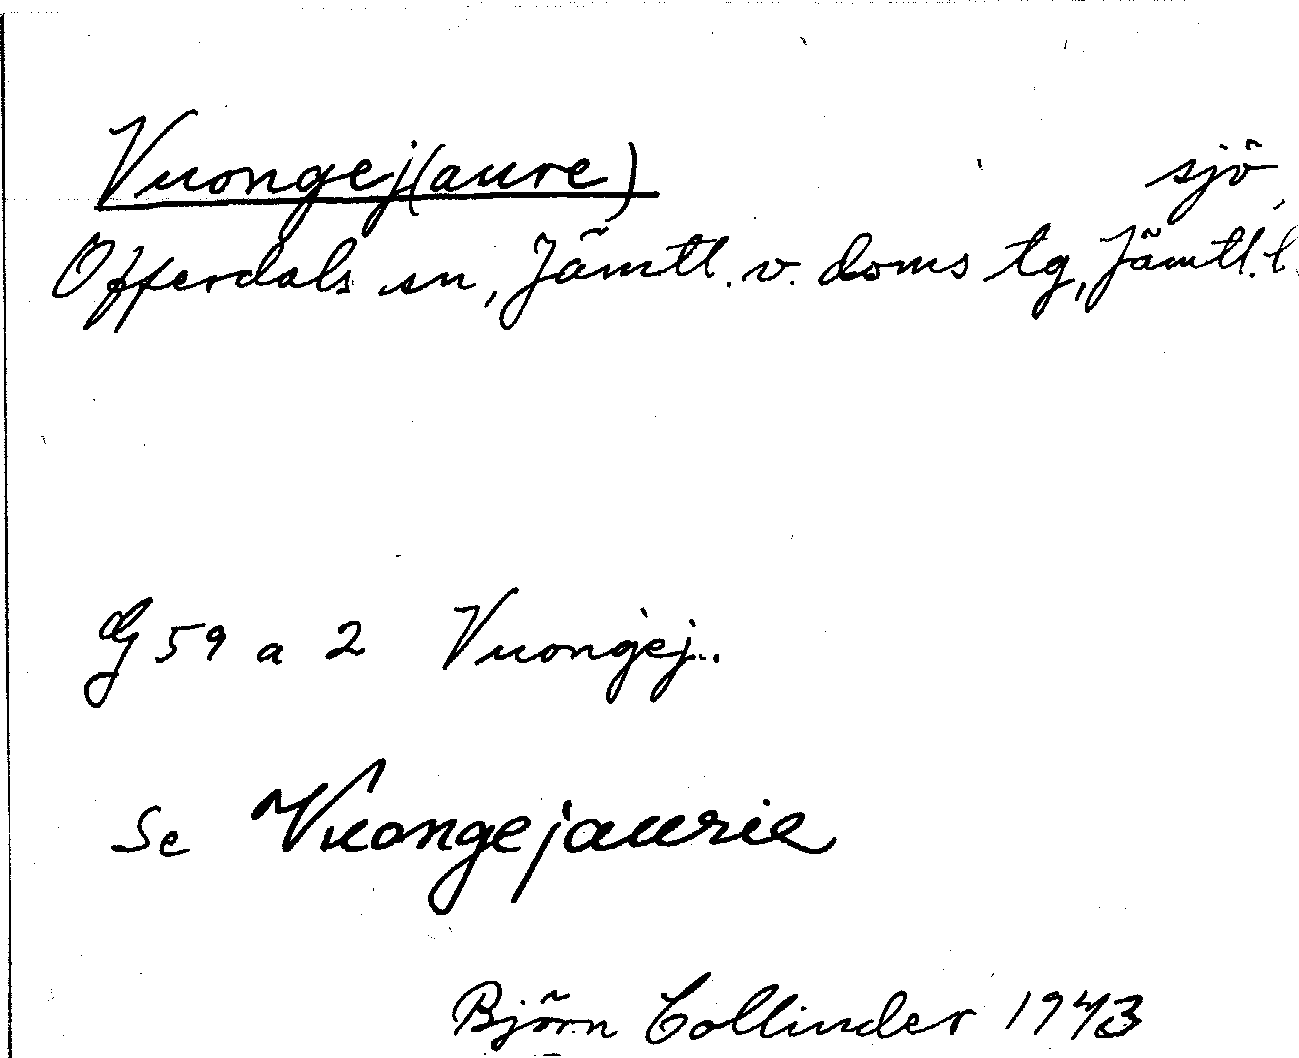 Vuongej(aure) sjö,
Offerdals sn, Jämtl. v. doms tg, Jämtl. l.
G 59 a 2 Vuongej..
Se Vuongejaurie
Björn Collinder 1943